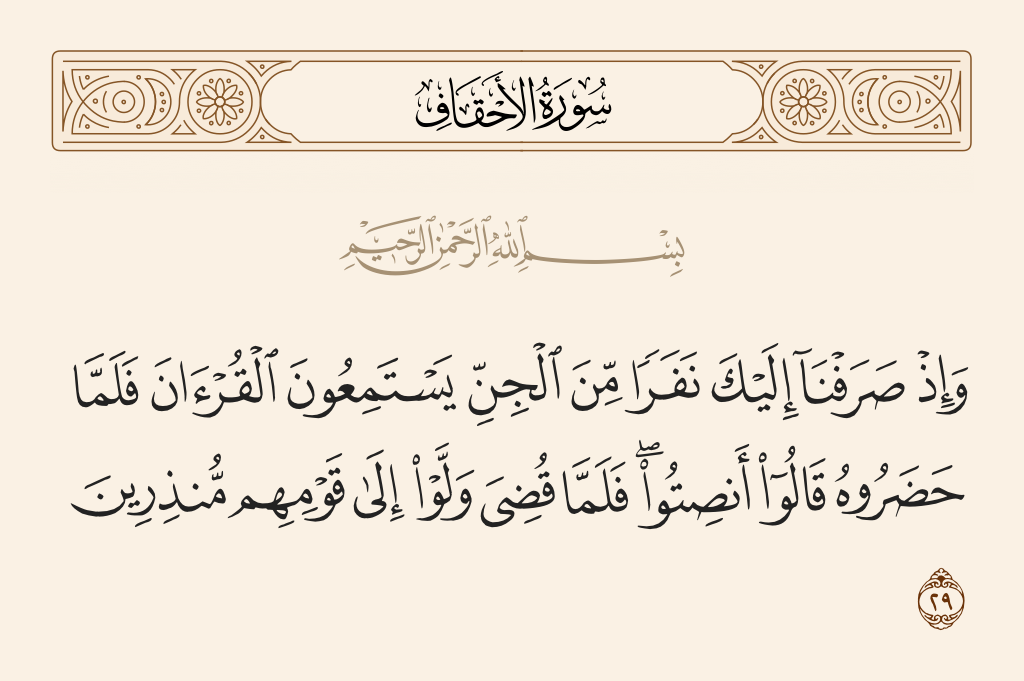 سُورَةُ الأَحْقَافِ
بِسْمِ ٱللَّهِ ٱلرَّحْمَٰنِ ٱلرَّحِيمِ
وَإِذْ صَرَفْنَآ إِلَيْكَ نَفَرًا مِّنَ ٱلْجِنِّ يَسْتَمِعُونَ ٱلْقُرْءَانَ فَلَمَّا
حَضَرُوهُ قَالُوٓا۟ أَنصِتُوا۟ ۖ فَلَمَّا قُضِىَ وَلَّوْا۟ إِلَىٰ قَوْمِهِم مُّنذِرِينَ
٢٩